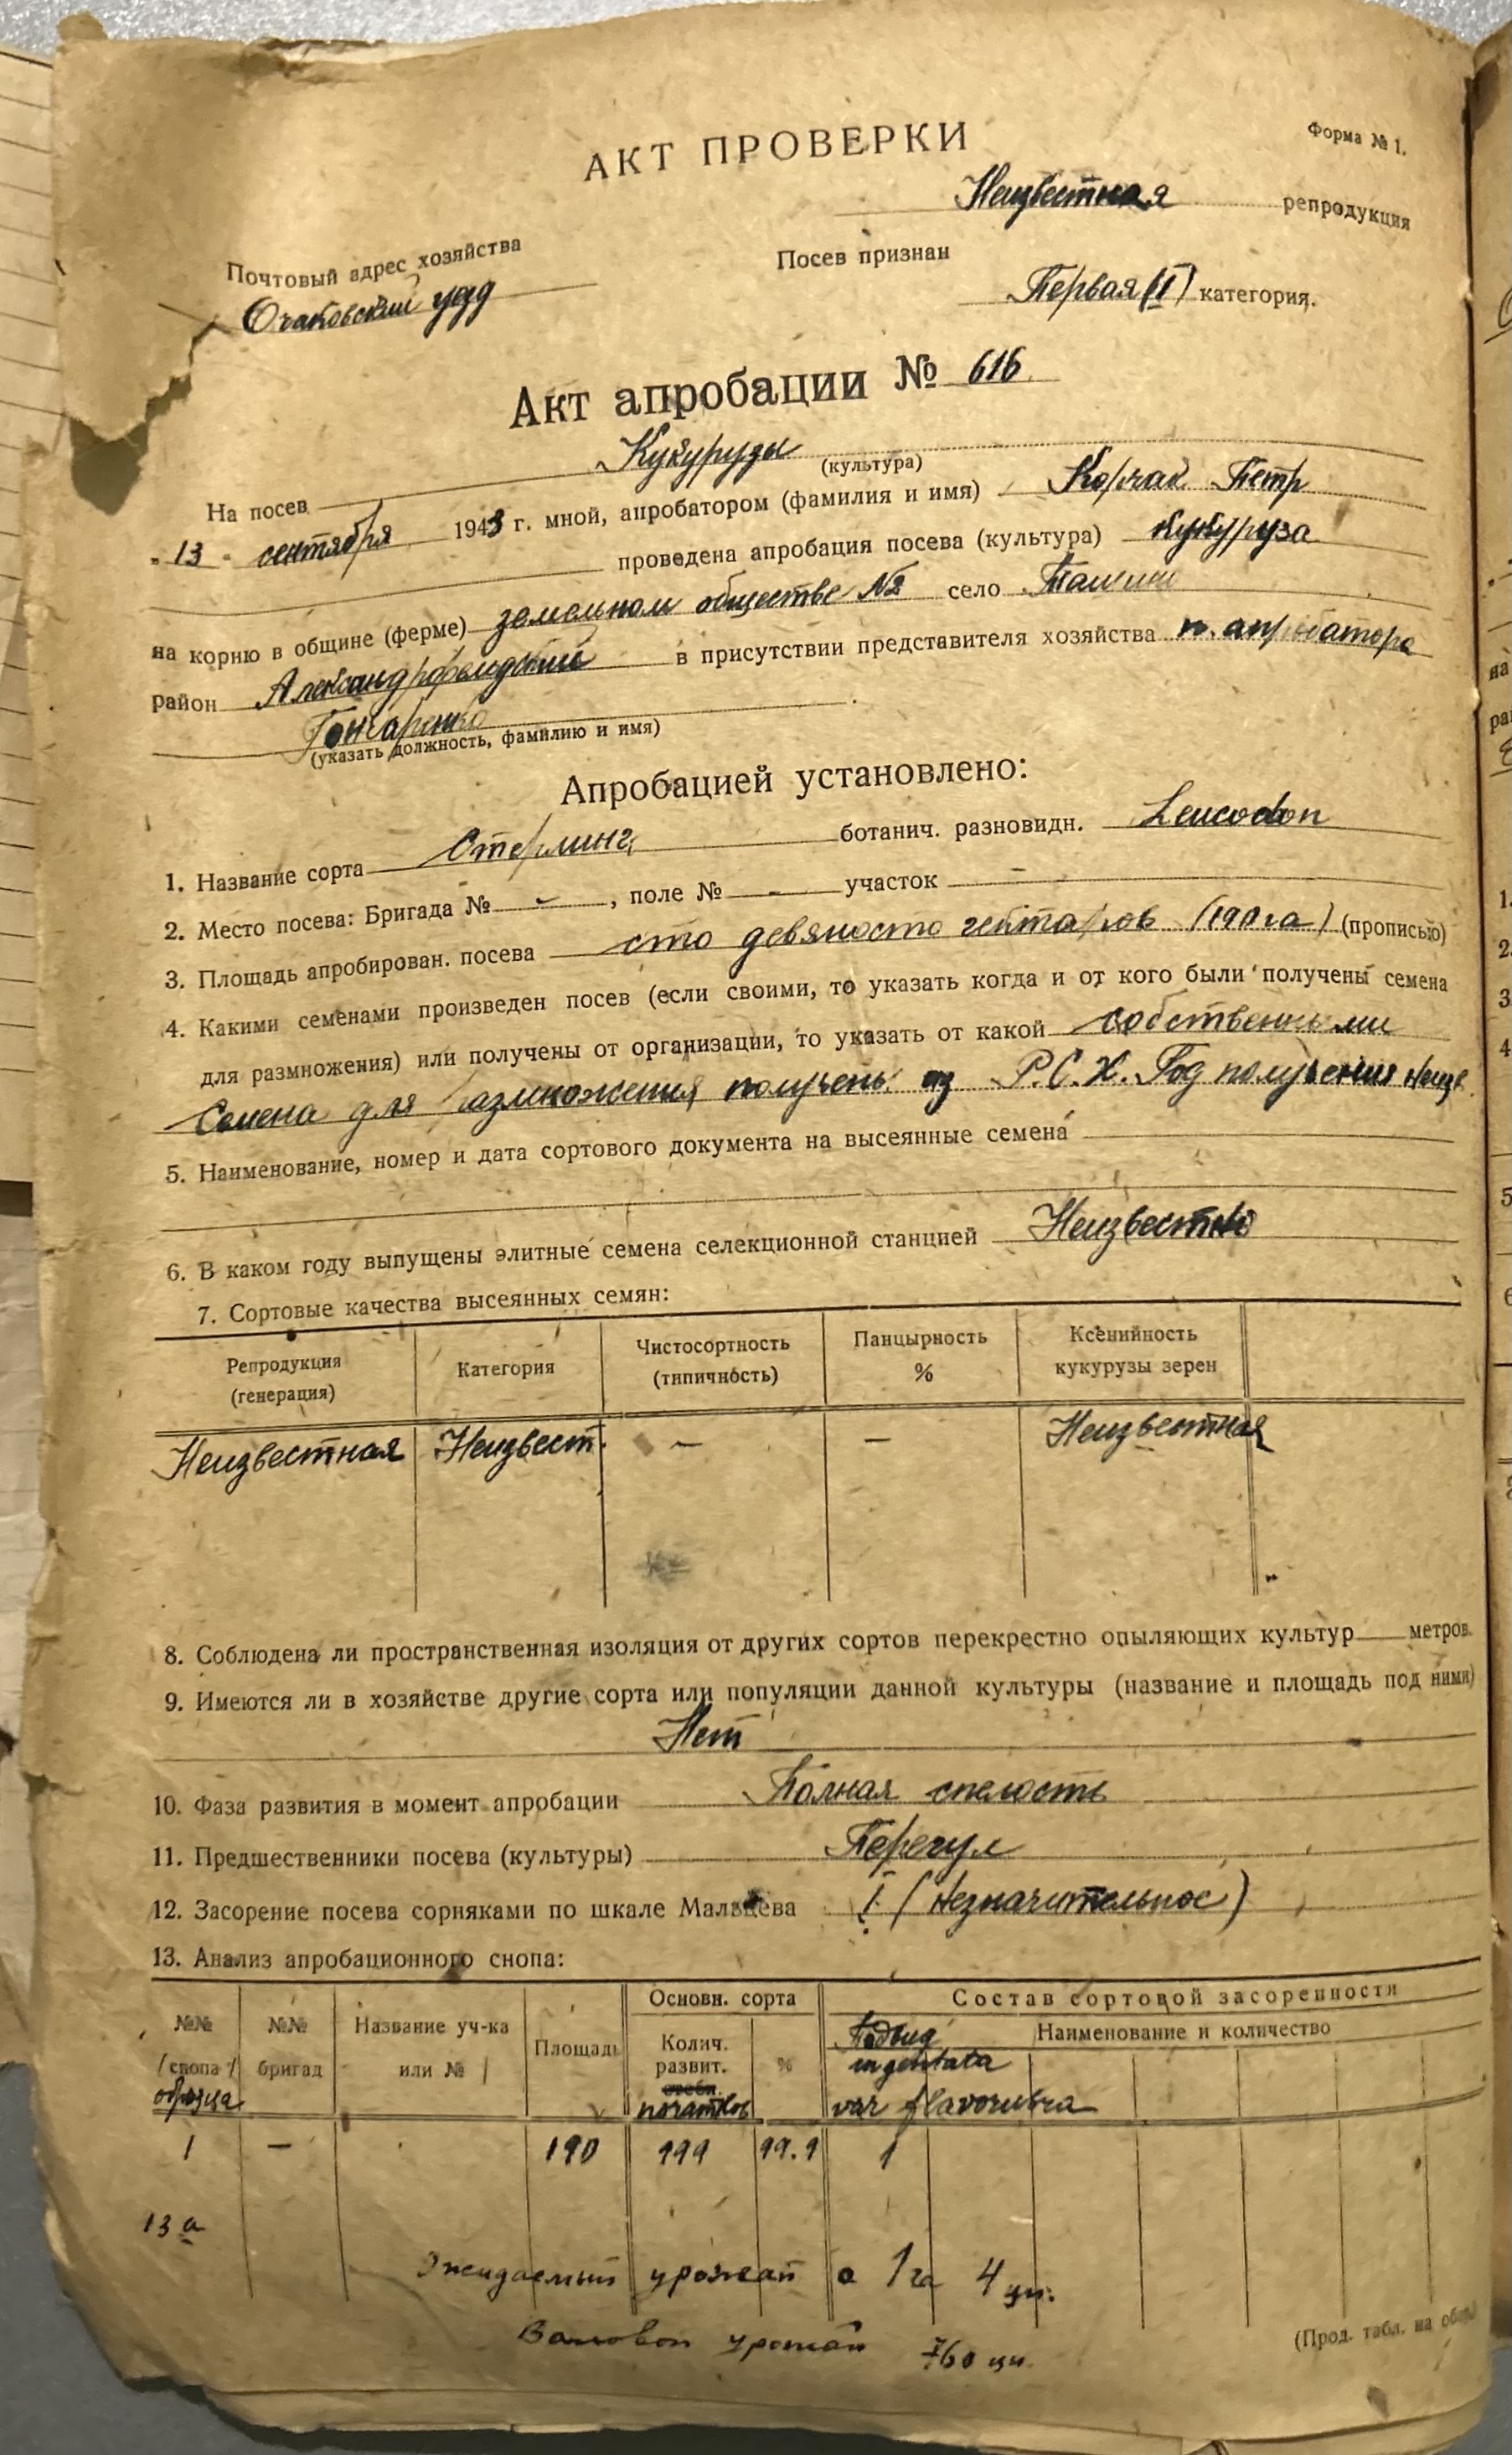 Форма № 1.
АКТ ПРОВЕРКИ
Неизвестная репродукция
Почтовый адрес хозяйства
Посев признан
Очаковский уезд
Первая (I) категория.
Акт апробации № 616
На посев Кукурузы
(культура)
„13" сентября 1943 г. мной, апробатором (фамилия и имя) Корчак Петр
проведена апробация посева (культура) кукуруза
на корню в общине (ферме) земельном обществе №2 село
район Александрфельдский в присутствии представителя хозяйства п. апробатора
Гончаренко
(указать должность, фамилию и имя)
Апробацией установлено:
1. Название сорта Стерлинг ботанич. разновидн. Leucodon
2. Место посева: Бригада № - , поле № - участок -
3. Площадь апробирован. посева сто девяносто гектаров (190 га) (прописью)
4. Какими семенами произведен посев (если своими, то указать когда и от кого были получены семена
для размножения) или получены от организации, то указать от какой собственными
Семена для размножения получены из Р.С.Х. Год получения Неизв.
5. Наименование, номер и дата сортового документа на высеянные семена
6. В каком году выпущены элитные семена селекционной станцией Неизвестно
7. Сортовые качества высеянных семян:
Репродукция (генерация) Категория Чистосортность (типичность) Панцырность % Ксенийность кукурузы зерен
Неизвестная Неизвест. - - Неизвестная
8. Соблюдена ли пространственная изоляция от других сортов перекрестно опыляющих культур метров.
9. Имеются ли в хозяйстве другие сорта или популяции данной культуры (название и площадь под ними)
Нет
10. Фаза развития в момент апробации Полная спелость
11. Предшественники посева (культуры)
12. Засорение посева сорняками по шкале Мальцева I (Незначительное)
13. Анализ апробационного снопа:
Основн. сорта Состав сортовой засоренности
№№ /снопа/ образца №№ бригад Название уч-ка или № Площадь Колич. развит. стебл. початков % Наименование и количество
Подвид indentata
var flavorubra
1 - 190 999 99.9 1
13 а
Ожидаемый урожай с 1 га 4 цн.
Валовой урожай 760 цн.
(Прод. табл. на обор